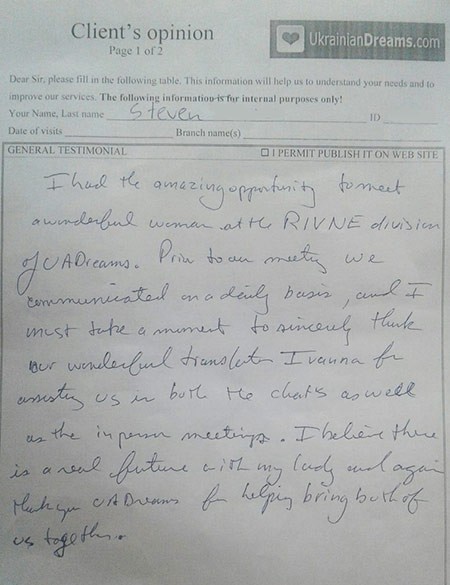 Client's opinion
Page 1 of 2
UkrainianDreams.com
Dear Sir, please fill in the following table. This information will help us to understand your needs and to
improve our services. The following information is for internal purposes only!
Your Name, Last name Steven ID
Date of visits Branch name(s)
GENERAL TESTIMONIAL ☐ I PERMIT PUBLISH IT ON WEB SITE
I had the amazing opportunity to meet
a wonderful woman at the RIVNE division
of UADreams. Prior to our meeting we
communicated on a daily basis, and I
must take a moment to sincerely thank
our wonderful translator Ivanna for
assisting us in both the chats as well
as the in person meetings. I believe there
is a real future with my lady and again
thank you UADreams for helping bring both of
us together.